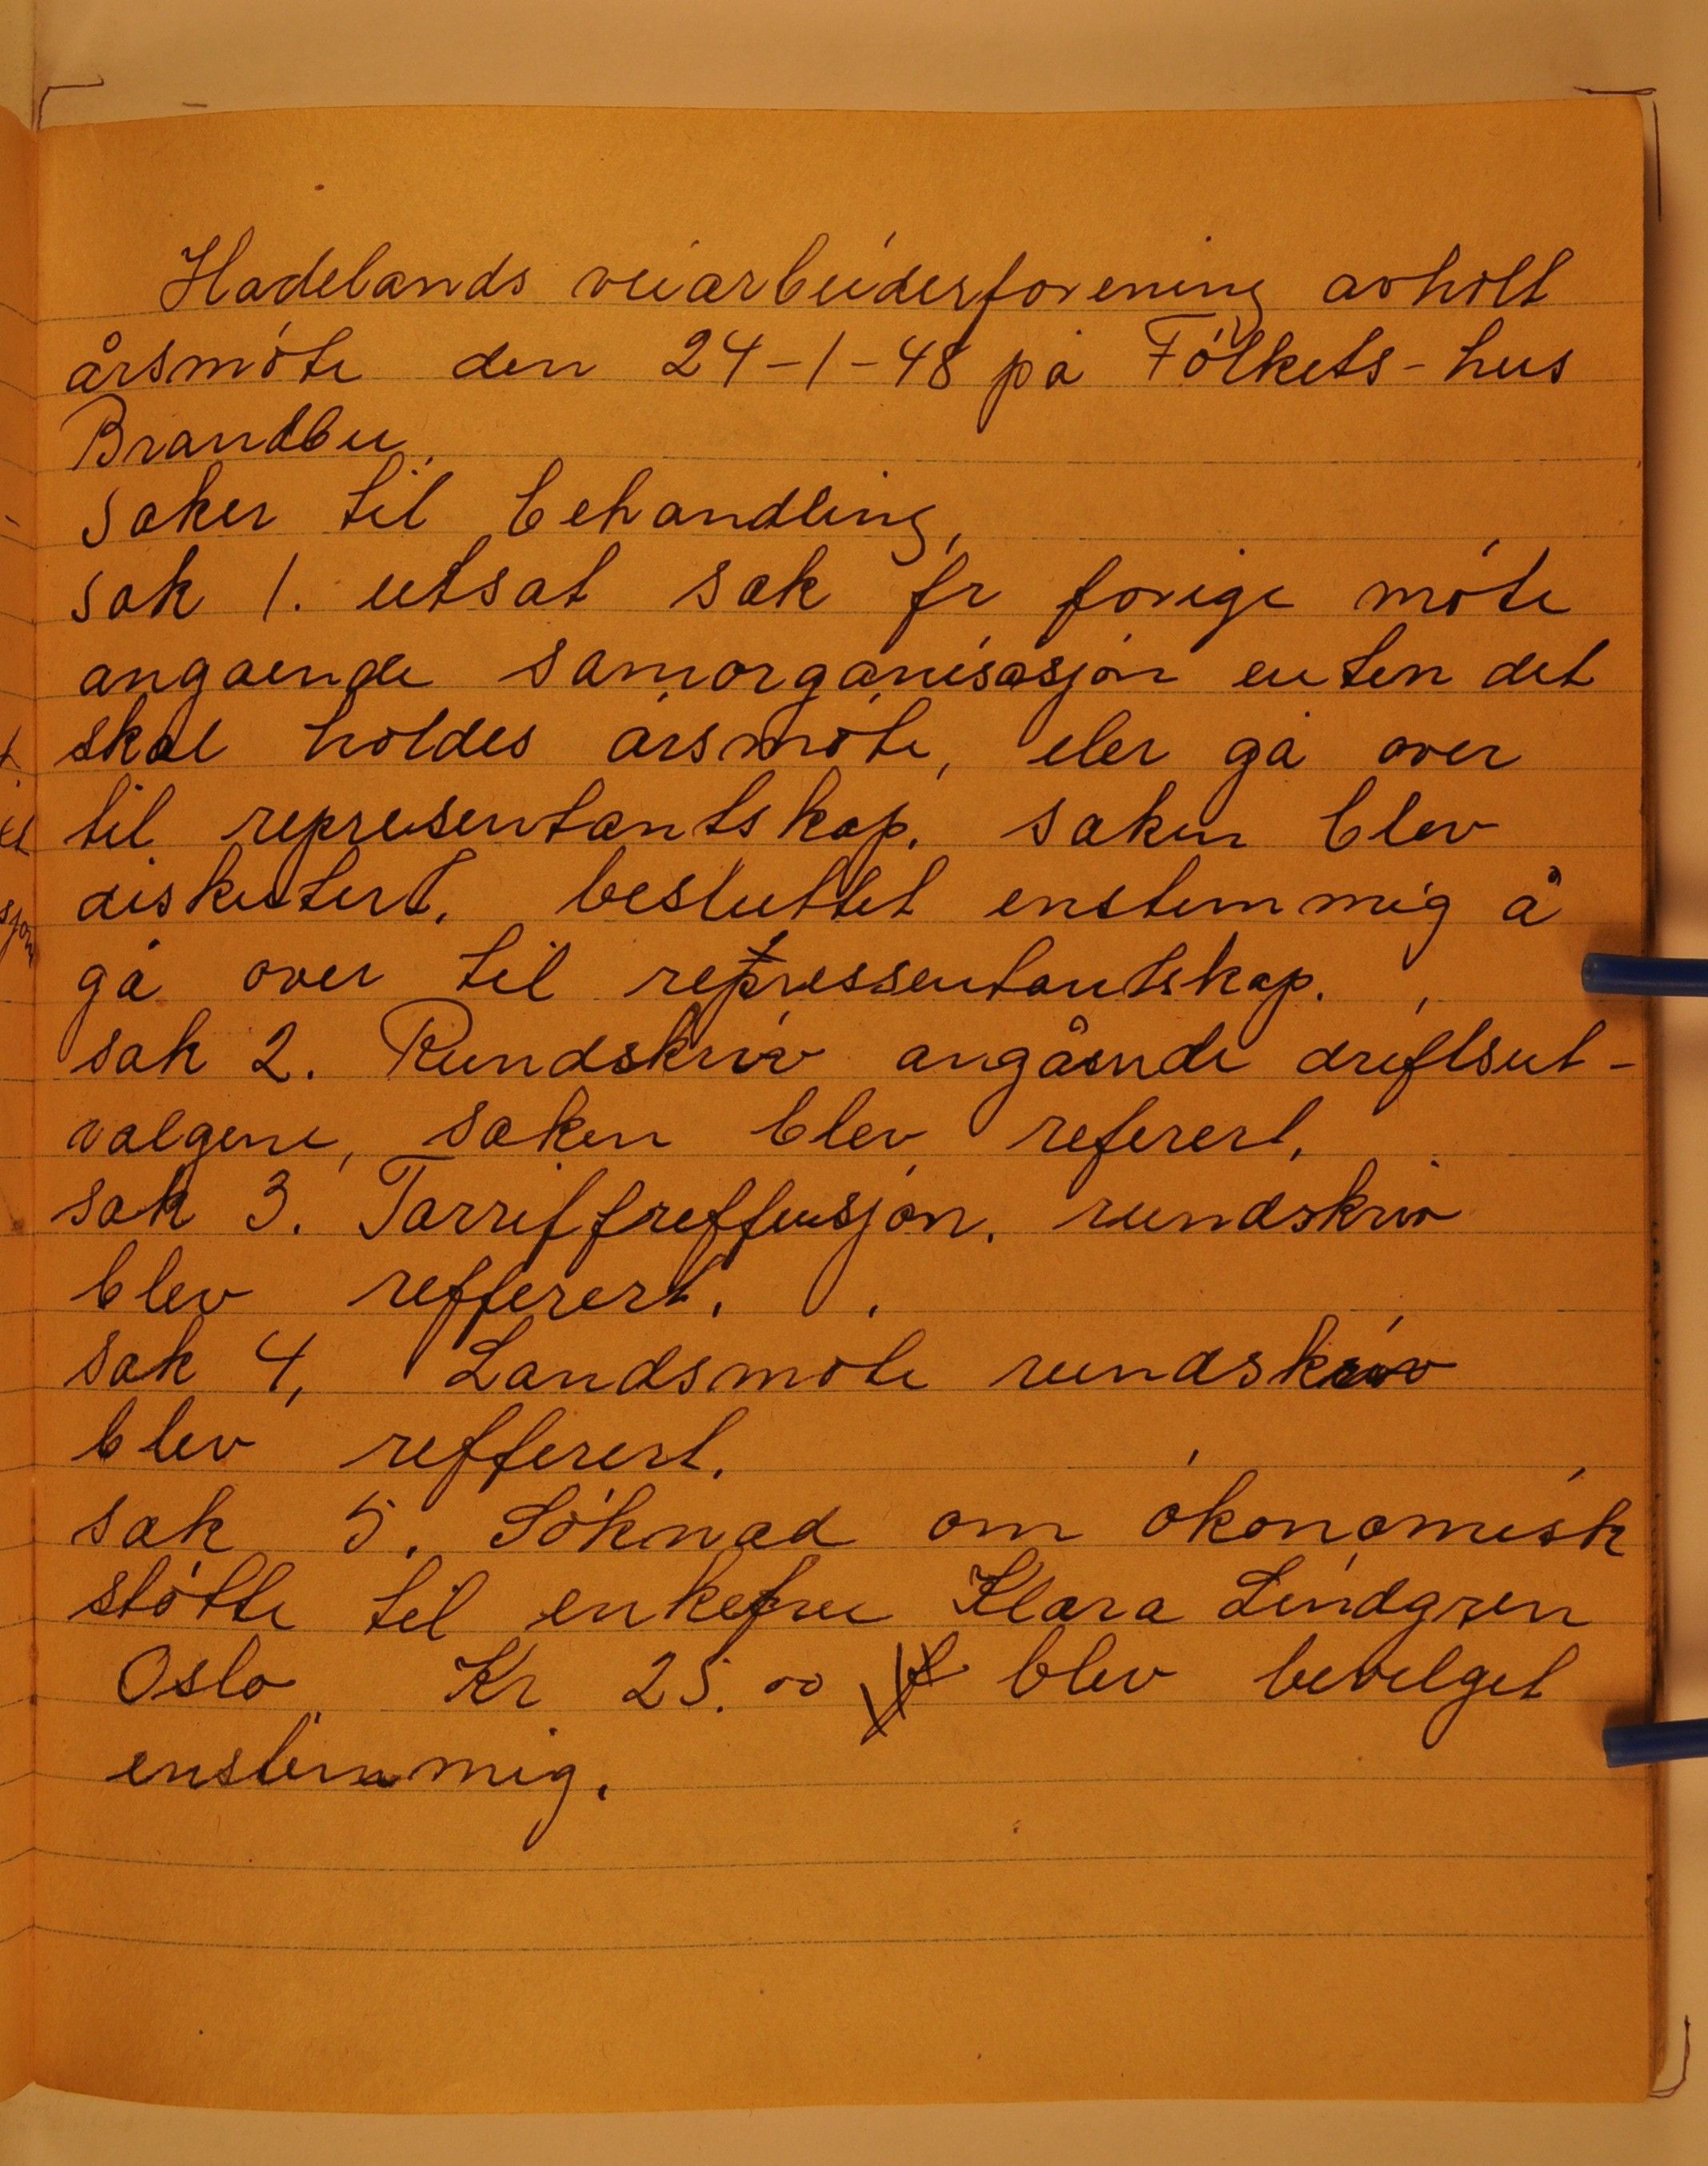 Hadelands veiarbeiderforening avholt
årsmöte den 24-1-48 på Folkets-hus
Brandbu.
Saker til behandling,
sak 1. utsat sak fr forige möte
angaende samorganisasjon enten det
skal holdes årsmöte, eler gå over
til representantskap. saken blev
diskutert. besluttet enstemmig å
gå over til repressentantskap.
sak 2. Rundskriv angående driftsut-
valgene, saken blev referert.
sak 3. Tarriffreffusjon. rundskriv
blev refferert.
sak 4, Landsmöte rundskriv
blev refferert.
sak 5. Söknad om ökonomisk
stötte til enkefru Klara Lindgren
Oslo Kr 25.00 blev bevilget
enstemmig.